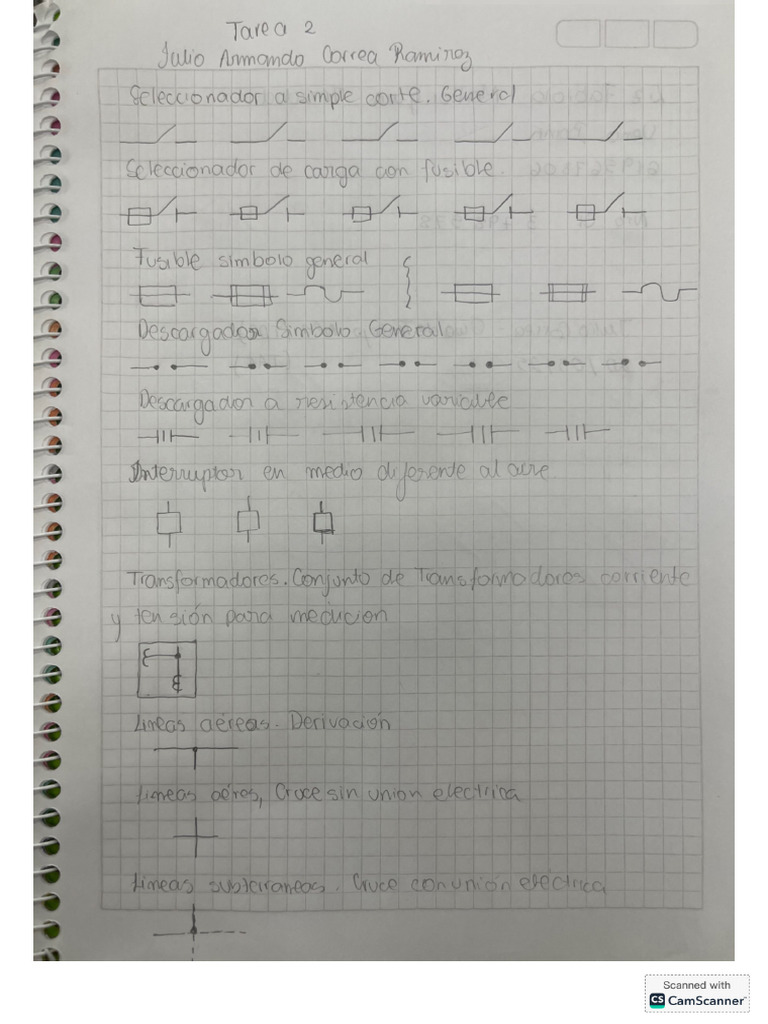 Tarea 2
Julio Armando Correa Ramirez
Seleccionador a simple corte. General
Seleccionador de carga con fusible.
Fusible simbolo general
Descargador Simbolo General
Descargador a resistencia variable
Interruptor en medio diferente al aire.
Transformadores. Conjunto de Transformadores corriente
y tensión para medicion
Lineas aéreas. Derivación
Lineas aéras, Cruce sin union electrica
Lineas subterraneas. Cruce con unión electrica
Scanned with
CS CamScanner